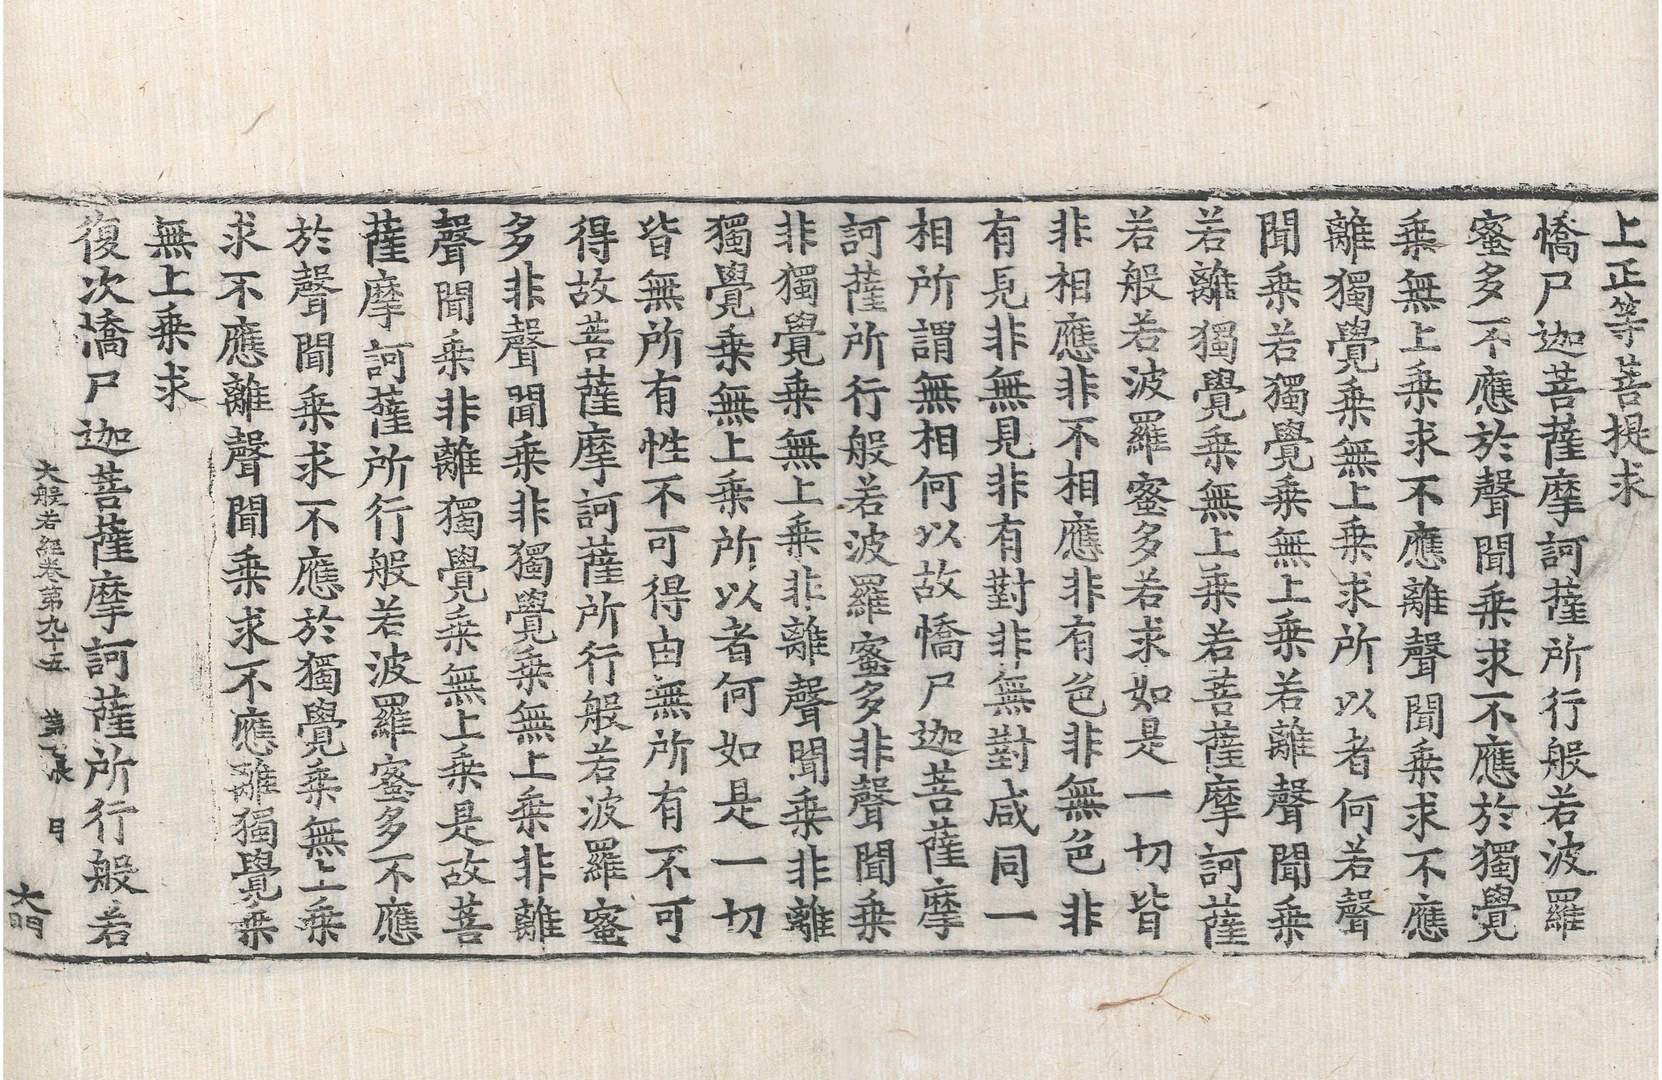 上正等菩提求
憍尸迦菩薩摩訶薩所行般若波羅
蜜多不應於聲聞乗求不應於獨覺
乗無上乗求不應離聲聞乗求不應
離獨覺乗無上乗求所以者何若聲
聞乗若獨覺乗無上乗若離聲聞乗
若離獨覺乗無上乗若菩薩摩訶薩
若般若波羅蜜多若求如是一切皆
非相應非不相應非有色非無色非
有見非無見非有對非無對咸同一
相所謂無相何以故憍尸迦菩薩摩
訶薩所行般若波羅蜜多非聲聞乗
非獨覺乗無上乗非離聲聞乗非離
獨覺乗無上乗所以者何如是一切
皆無所有性不可得由無所有不可
得故菩薩摩訶薩所行般若波羅蜜
多非聲聞乗非獨覺乗無上乗非離
聲聞乗非離獨覺乗無上乗是故菩
薩摩訶薩所行般若波羅蜜多不應
於聲聞乗求不應於獨覺乗無上乗
求不應離聲聞乗求不應離獨覺乗
無上乗求
復次憍尸迦菩薩摩訶薩所行般若
大般若經卷第九十五 第 張 月
大門